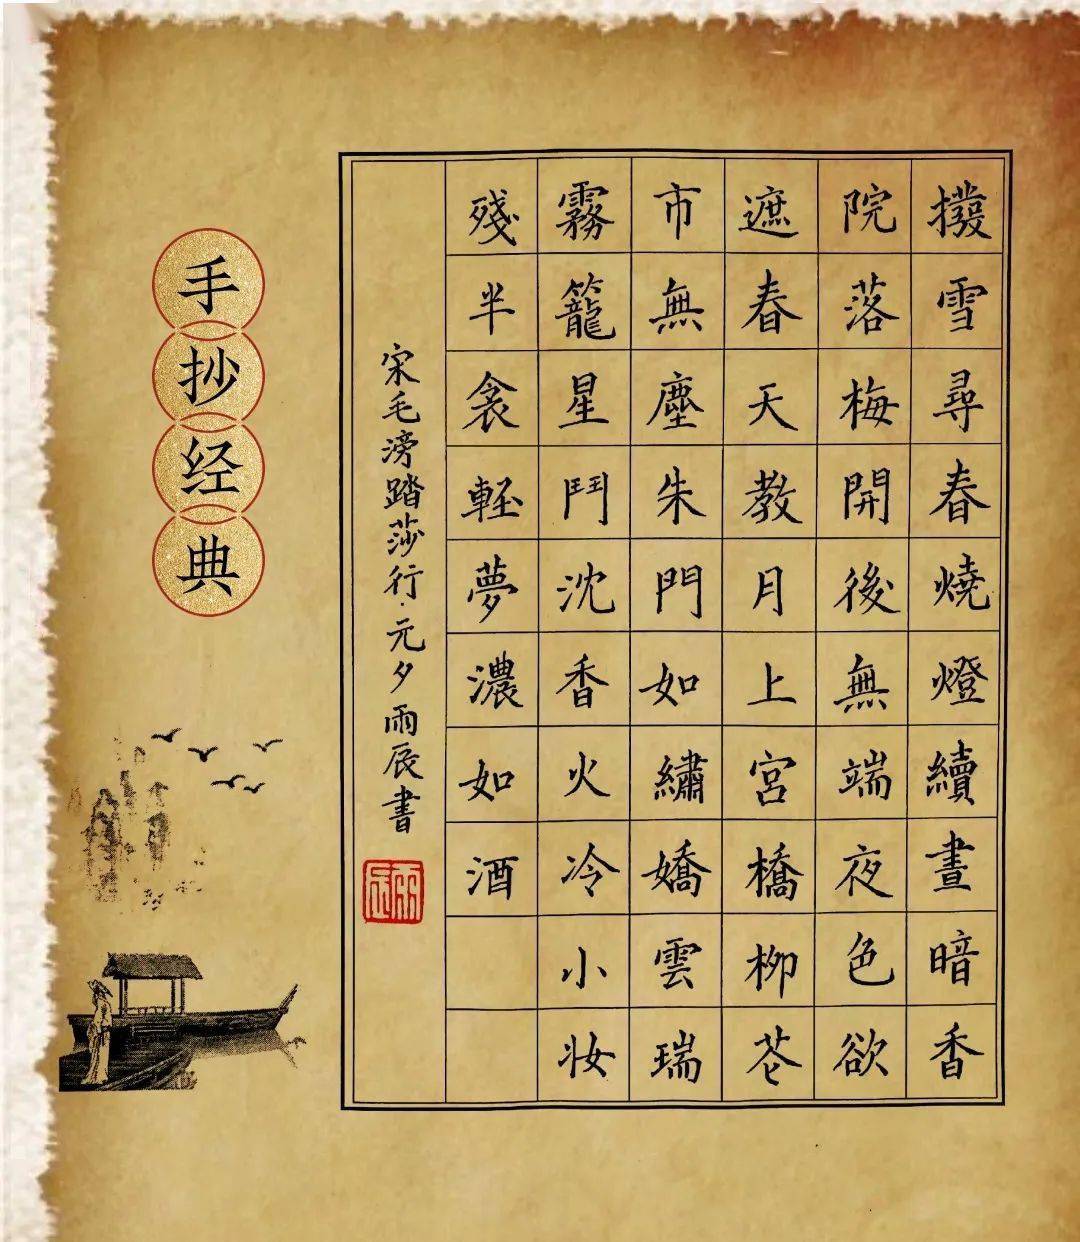 撥雪尋春燒燈續晝暗香
院落梅開後無端夜色欲
遮春天教月上宮橋柳花
市無塵朱門如繡嬌雲瑞
霧籠星鬥沈香火冷小妆
殘半衾輕夢濃如酒
宋毛滂踏莎行·元夕雨辰書
雨辰
手抄经典